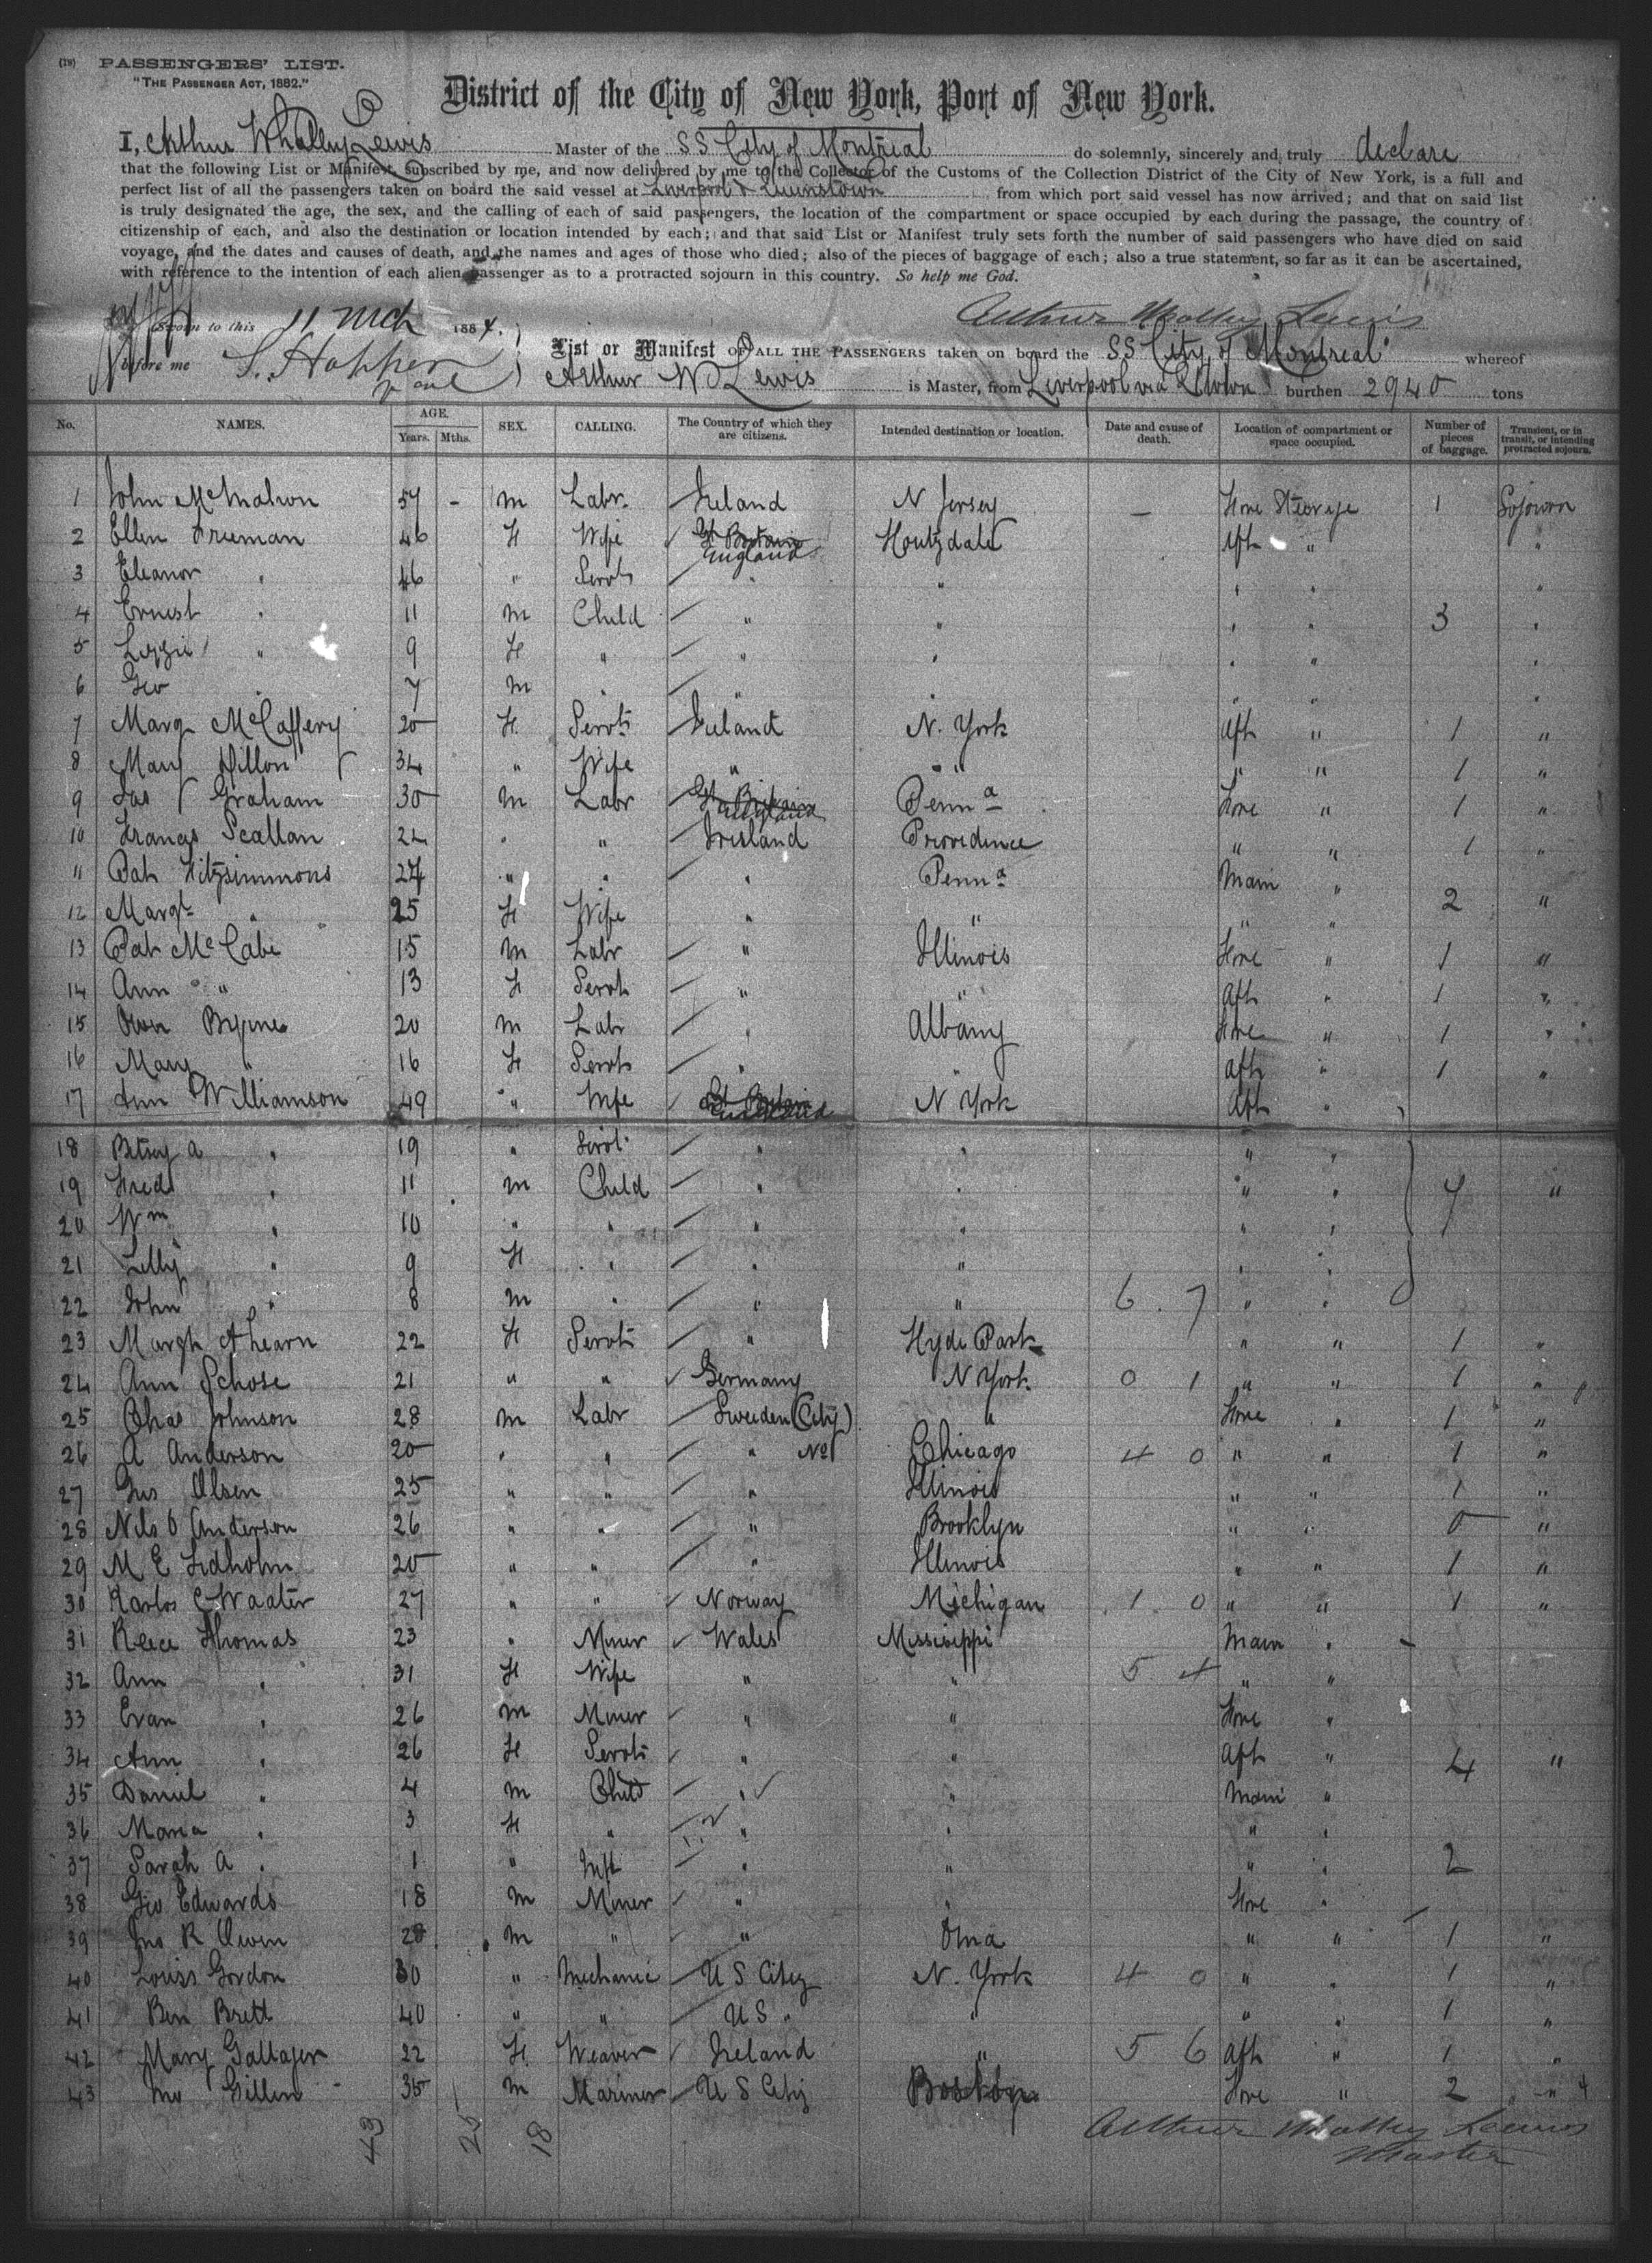 (19) PASSENGERS' LIST.
"THE PASSENGER ACT, 1882."
District of the City of New York, Port of New York.
I, Arthur Whalley Lewis Master of the SS City of Montreal do solemnly, sincerely and truly declare
that the following List or Manifest, subscribed by me, and now delivered by me to the Collector of the Customs of the Collection District of the City of New York, is a full and
perfect list of all the passengers taken on board the said vessel at Liverpool & Queenstown from which port said vessel has now arrived; and that on said list
is truly designated the age, the sex, and the calling of each of said passengers, the location of the compartment or space occupied by each during the passage, the country of
citizenship of each, and also the destination or location intended by each; and that said List or Manifest truly sets forth the number of said passengers who have died on said
voyage, and the dates and causes of death, and the names and ages of those who died; also of the pieces of baggage of each; also a true statement, so far as it can be ascertained,
with reference to the intention of each alien passenger as to a protracted sojourn in this country. So help me God.
Arthur Whalley Lewis
Sworn to this 11 Mch 1884.
before me S. Hopper
List or Manifest OF ALL THE PASSENGERS taken on board the SS City of Montreal whereof
Arthur W Lewis is Master, from Liverpool via Qtown burthen 2940 tons
No. NAMES. AGE. Years. Mths. SEX. CALLING. The Country of which they are citizens. Intended destination or location. Date and cause of death. Location of compartment or space occupied. Number of pieces of baggage. Transient, or in transit, or intending protracted sojourn.
1 John McMahon 57 - m Labr Ireland N Jersey - Fore Steerage 1 Sojourn
2 Ellen Freeman 46 F Wife Gt Britain England Houtzdale Aft " "
3 Eleanor " 46 " Servt " " " " "
4 Ernest " 11 m Child " " " " 3 "
5 Lizzie " 9 F " " " " " "
6 Geo " 7 m " " " " " "
7 Marg McCaffery 20 F Servt Ireland N. York Aft " 1 "
8 Mary Dillon 34 " Wife " " " " 1 "
9 Jas Graham 30 m Labr Gt Britain England Penna Fore " 1 "
10 Francis Scallan 22 " " Ireland Providence " " 1 "
11 Pat Fitzsimmons 27 " " " Penna Main "
12 Margt " 25 F Wife " " " " 2 "
13 Pat McCabe 15 m Labr " Illinois Fore " 1 "
14 Ann " 13 F Servt " " Aft " 1 "
15 Owen Byrne 20 m Labr " Albany Fore " 1 "
16 Mary " 16 F Servt " " Aft " 1 "
17 Ann Williamson 49 " Wife Gt Britain England N York Aft "
18 Betsey A " 19 " Servt " " " "
19 Fred " 11 m Child " " " " 7 "
20 Wm " 10 " " " " " "
21 Lilly " 9 F " " " " "
22 John " 8 m " " " 6 7 " "
23 Margt Ahearn 22 F Servt " Hyde Park " " 1 "
24 Ann Schose 21 " " Germany N York 0 1 " " 1 "
25 Chas Johnson 28 m Labr Sweden (City) " Fore " 1 "
26 A Anderson 20 " " " No Chicago 4 0 " " 1 "
27 Gus Olsen 25 " " " Illinois " " 1 "
28 Nils O Anderson 26 " " " Brooklyn " " 0 "
29 M E Lidholm 20 " " " Illinois " " 1 "
30 Karlos C Waater 27 " " Norway Michigan 1 0 " " 1 "
31 Reece Thomas 23 " Miner Wales Missisippi Main " -
32 Ann " 31 F Wife " " 5 4 " "
33 Evan " 26 m Miner " " Fore "
34 Ann " 26 F Servt " " Aft " 4 "
35 Daniel " 4 m Child " " Main "
36 Maria " 3 F " " " " "
37 Sarah A " 1 " Inft " " " " 2
38 Geo Edwards 18 m Miner " " Fore "
39 Jno R Owen 28 m " " Oma " " 1 "
40 Louis Gordon 30 " Mechanic U S Citiz N. York 4 0 " " 1 "
41 Ben Brett 40 " " U S " " " " 1 "
42 Mary Gallager 22 F Weaver Ireland " 5 6 Aft " 1 "
43 Jno Gillen 35 m Mariner U S Citiz Boston Fore " 2 "
43 25 18
Arthur Whalley Lewis
Master